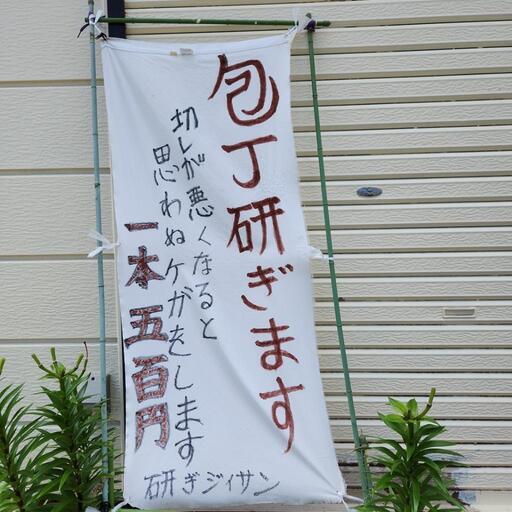 包丁研ぎます
切レが悪くなると
思わぬケガをします
一本五百円
研ぎジイサン